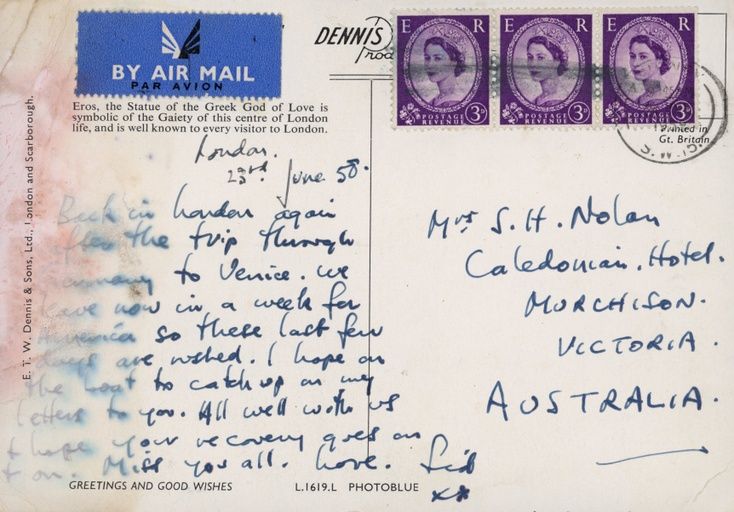 BY AIR MAIL
PAR AVION
DENNIS
Prod
E R
POSTAGE REVENUE 3D
E R
POSTAGE REVENUE 3D
E R
POSTAGE REVENUE 3D
Printed in
Gt. Britain
Eros, the Statue of the Greek God of Love is
symbolic of the Gaiety of this centre of London
life, and is well known to every visitor to London.
E. T. W. Dennis & Sons, Ltd., London and Scarborough.
London.
23rd June 58.
Back in London again
after the trip through
Germany to Venice. We
leave now in a week for
America so these last few
days are rushed. I hope on
the boat to catch up on my
letters to you. All well with us
+ hope your recovery goes on
+ on. Miss you all. Love. Sid
xx
Mrs S. H. Nolan
Caledonian. Hotel.
MURCHISON.
VICTORIA.
AUSTRALIA.
GREETINGS AND GOOD WISHES
L.1619.L PHOTOBLUE